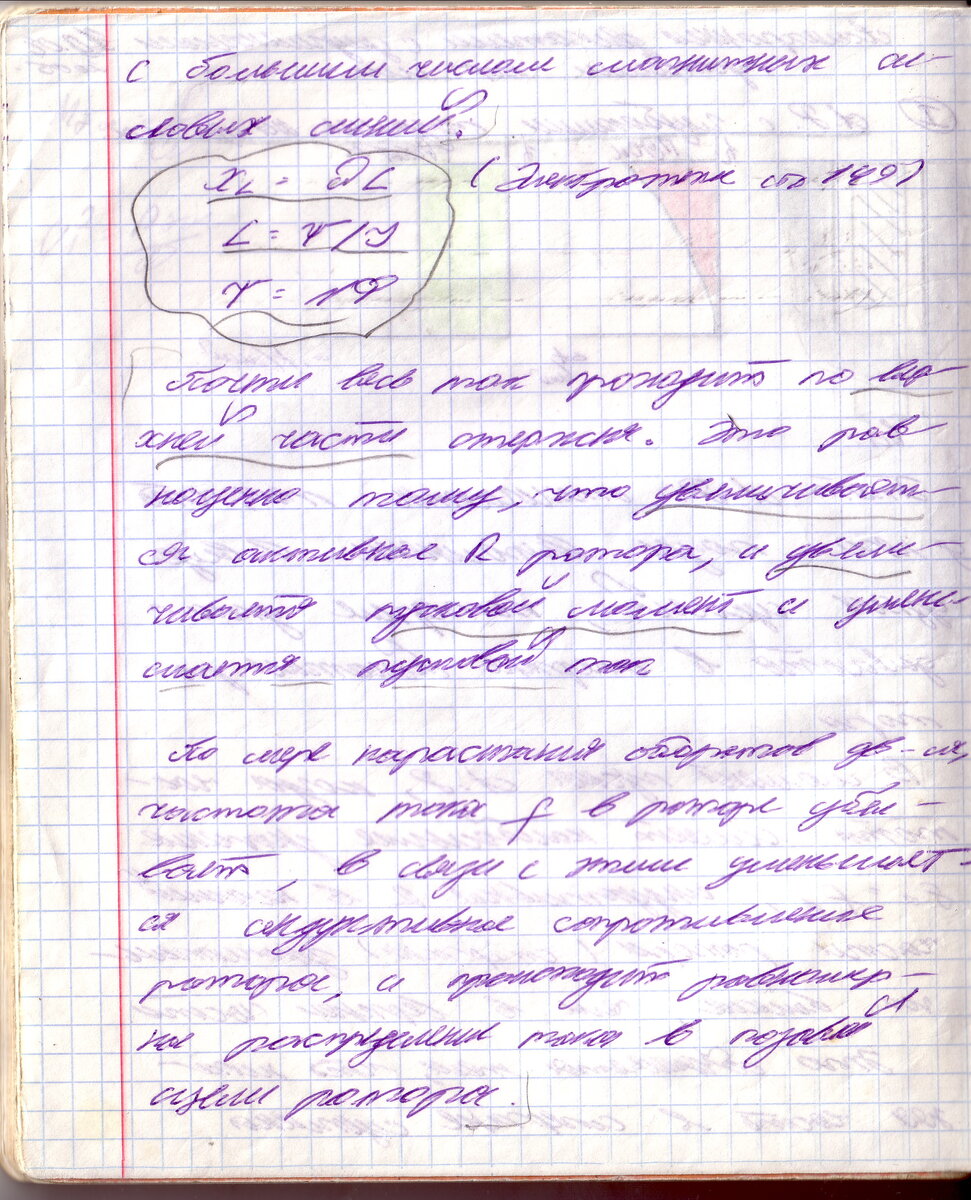 с большим числом магнитных си-
ловых линий.
X_L = ωL
(Электротехн стр 149)
L = Ψ/I
Ψ = NΦ
Почти весь ток проходит по вер-
хней части стержня. Это рав-
ноценно тому, что увеличивает-
ся активное R ротора, и увели-
чивается пусковой момент и умень-
шается пусковой ток
По мере нарастания оборотов дв-ля,
частота тока f в роторе убы-
вает, в связи с этим уменьшает-
ся индуктивное сопротивление
ротора, и происходит равномер-
ное распределение тока в пазовой
щели ротора.